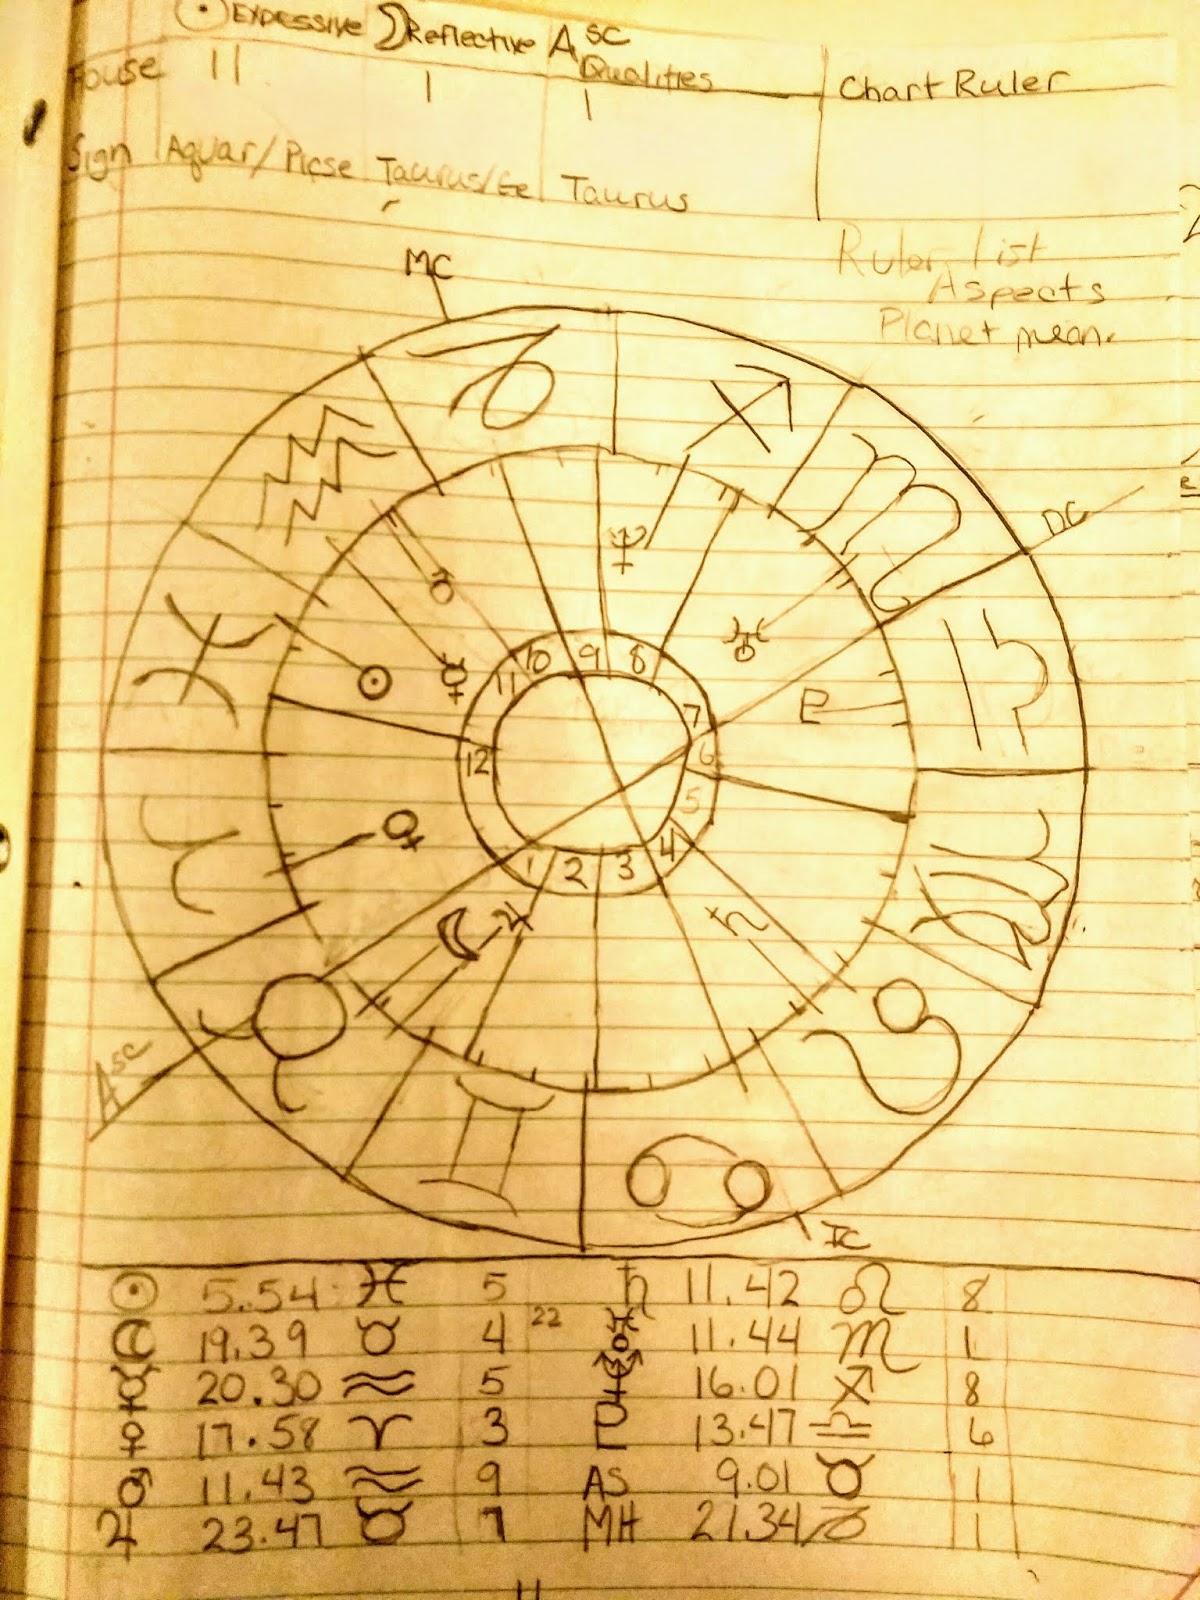 ☉ Expessive ☽ Reflective Asc Qualities Chart Ruler
House 11 1 1
Sign Aquar/Picse Taurus/Ge Taurus
Ruler List
Aspects
Planet mean.
MC
♑ ♐
♒ ♏
DC
♆
♂ ♅
♓ ♎
10 9 8
☉ ☿ 11 7 ♇
12 6
5
♈ ♀ 4 ♍
1 2 3
☽ ♃ ♄
♉ ♌
Asc
♊ ♋
IC
☉ 5.54 ♓ 5 ♄ 11.42 ♌ 8
☽ 19.39 ♉ 4 22 ♅ 11.44 ♏ 1
☿ 20.30 ♒ 5 ♆ 16.01 ♐ 8
♀ 17.58 ♈ 3 ♇ 13.47 ♎ 6
♂ 11.43 ♒ 9 AS 9.01 ♉ 1
♃ 23.47 ♉ 1 MH 21.34 ♑ 1